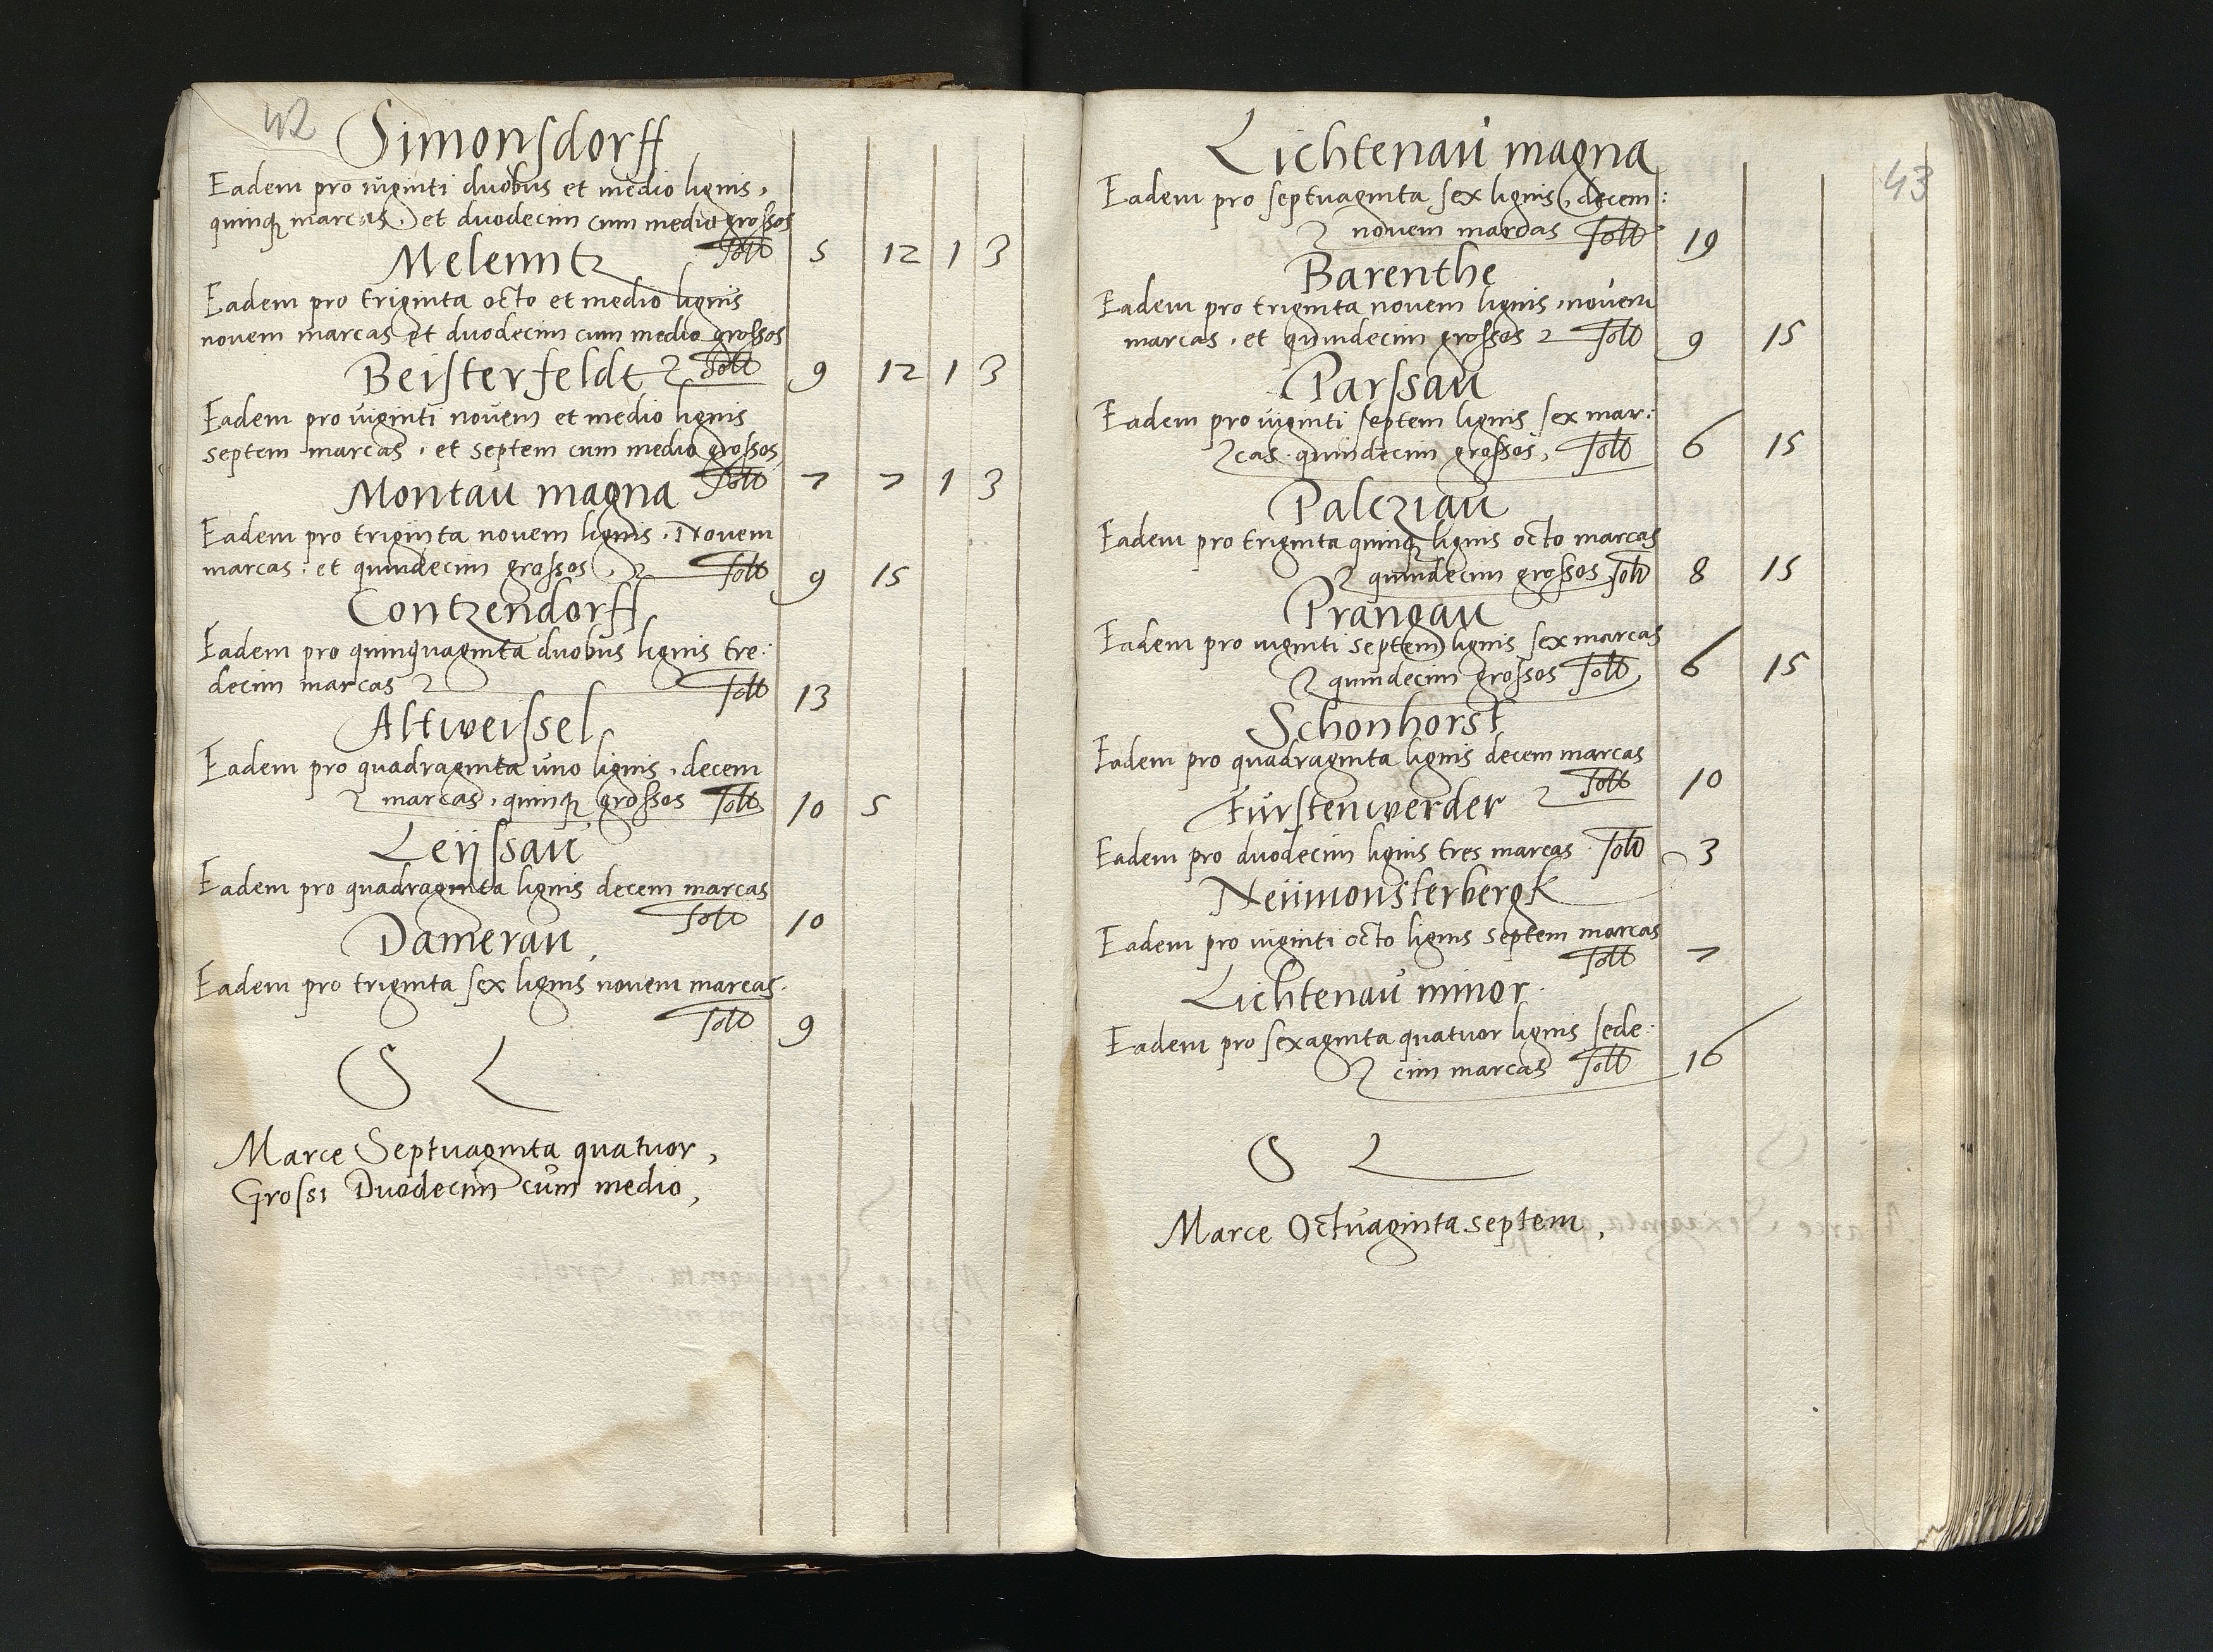 42
Simonsdorff
Eadem pro viginti duobus et medio lignis,
quinq marcas. et duodecim cum medio grossos
Solt 5 12 1 3
Melenntz
Eadem pro triginta octo et medio lignis
novem marcas et duodecim cum medio grossos
Solt 9 12 1 3
Beisterfeldt
Eadem pro viginti novem et medio lignis
septem marcas, et septem cum medio grossos
Solt 7 7 1 3
Montau magna
Eadem pro triginta novem lignis. Novem
marcas, et quindecim grossos, Solt 9 15
Contzendorff
Eadem pro quinquaginta duobus lignis tre:
decim marcas Solt 13
Altweissel
Eadem pro quadraginta uno lignis, decem
marcas, quinq grossos Solt 10 5
Leijssau
Eadem pro quadraginta lignis decem marcas
Solt 10
Damerau,
Eadem pro triginta sex lignis novem marcas.
Solt 9
S L
Marce Septuaginta quatuor,
Grossi Duodecim cum medio,
43
Lichtenau magna
Eadem pro septuaginta sex lignis, decem:
novem marcas Solt 19
Barenthe
Eadem pro triginta novem lignis, novem
marcas, et quindecim grossos Solt 9 15
Parssau
Eadem pro viginti septem lignis sex mar:
cas quindecim grossos, Solt 6 15
Palcziau
Eadem pro triginta quinq lignis octo marcas
quindecim grossos Solt 8 15
Prangau
Eadem pro viginti septem lignis sex marcas
quindecim grossos Solt 6 15
Schonhorst
Eadem pro quadraginta lignis decem marcas
Solt 10
Furstenwerder
Eadem pro duodecim lignis tres marcas. Solt 3
Neumonsterbergk
Eadem pro viginti octo lignis septem marcas
Solt 7
Lichtenau minor.
Eadem pro sexaginta quatuor lignis sede:
cim marcas Solt 16
S L
Marce Octuaginta septem,